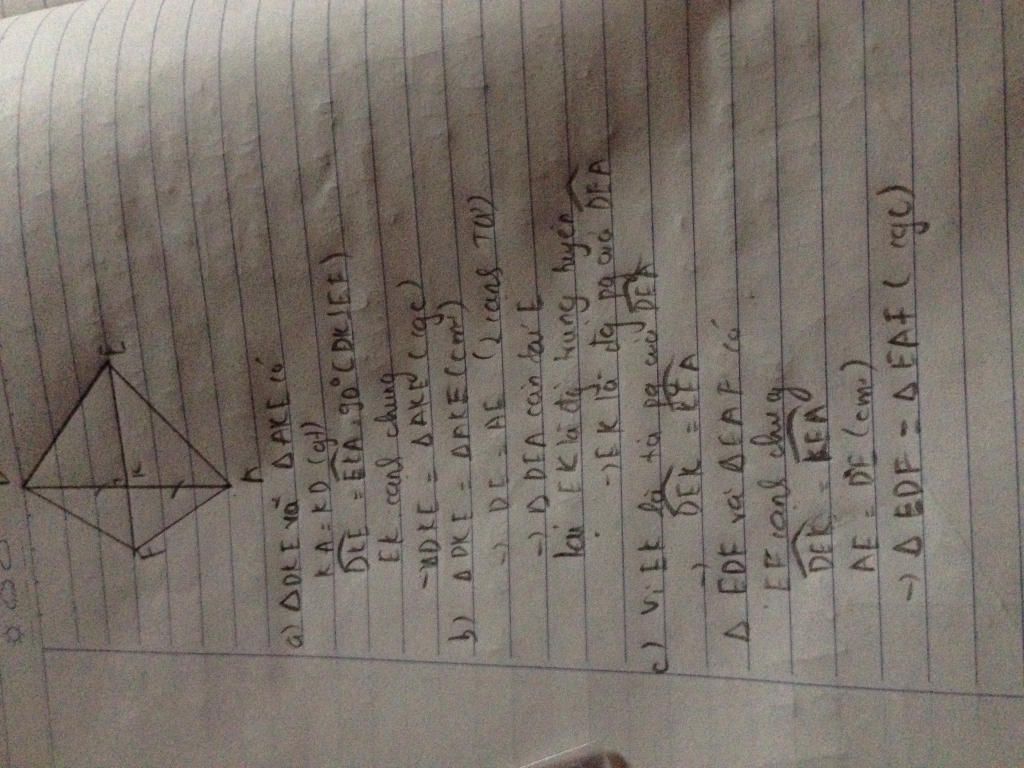 E
K
F
A
a) ΔDKE và ΔAKE có
KA = KD (gt)
DKE = EKA = 90° (DK⊥EF)
EK cạnh chung
→ ΔDKE = ΔAKE (cgc)
b) ΔDKE = ΔAKE (cmt)
→ DE = AE (2 cạnh TƯ)
→ ΔDEA cân tại E
lại EK là đg trung tuyến
→ EK là đg pg của DEA
c) Vì EK là tia pg của DEA
→ DEK = KEA
Δ EDF và ΔEAF có
EF cạnh chung
DEK = KEA
AE = DE (cmt)
→ Δ EDF = Δ EAF (cgc)